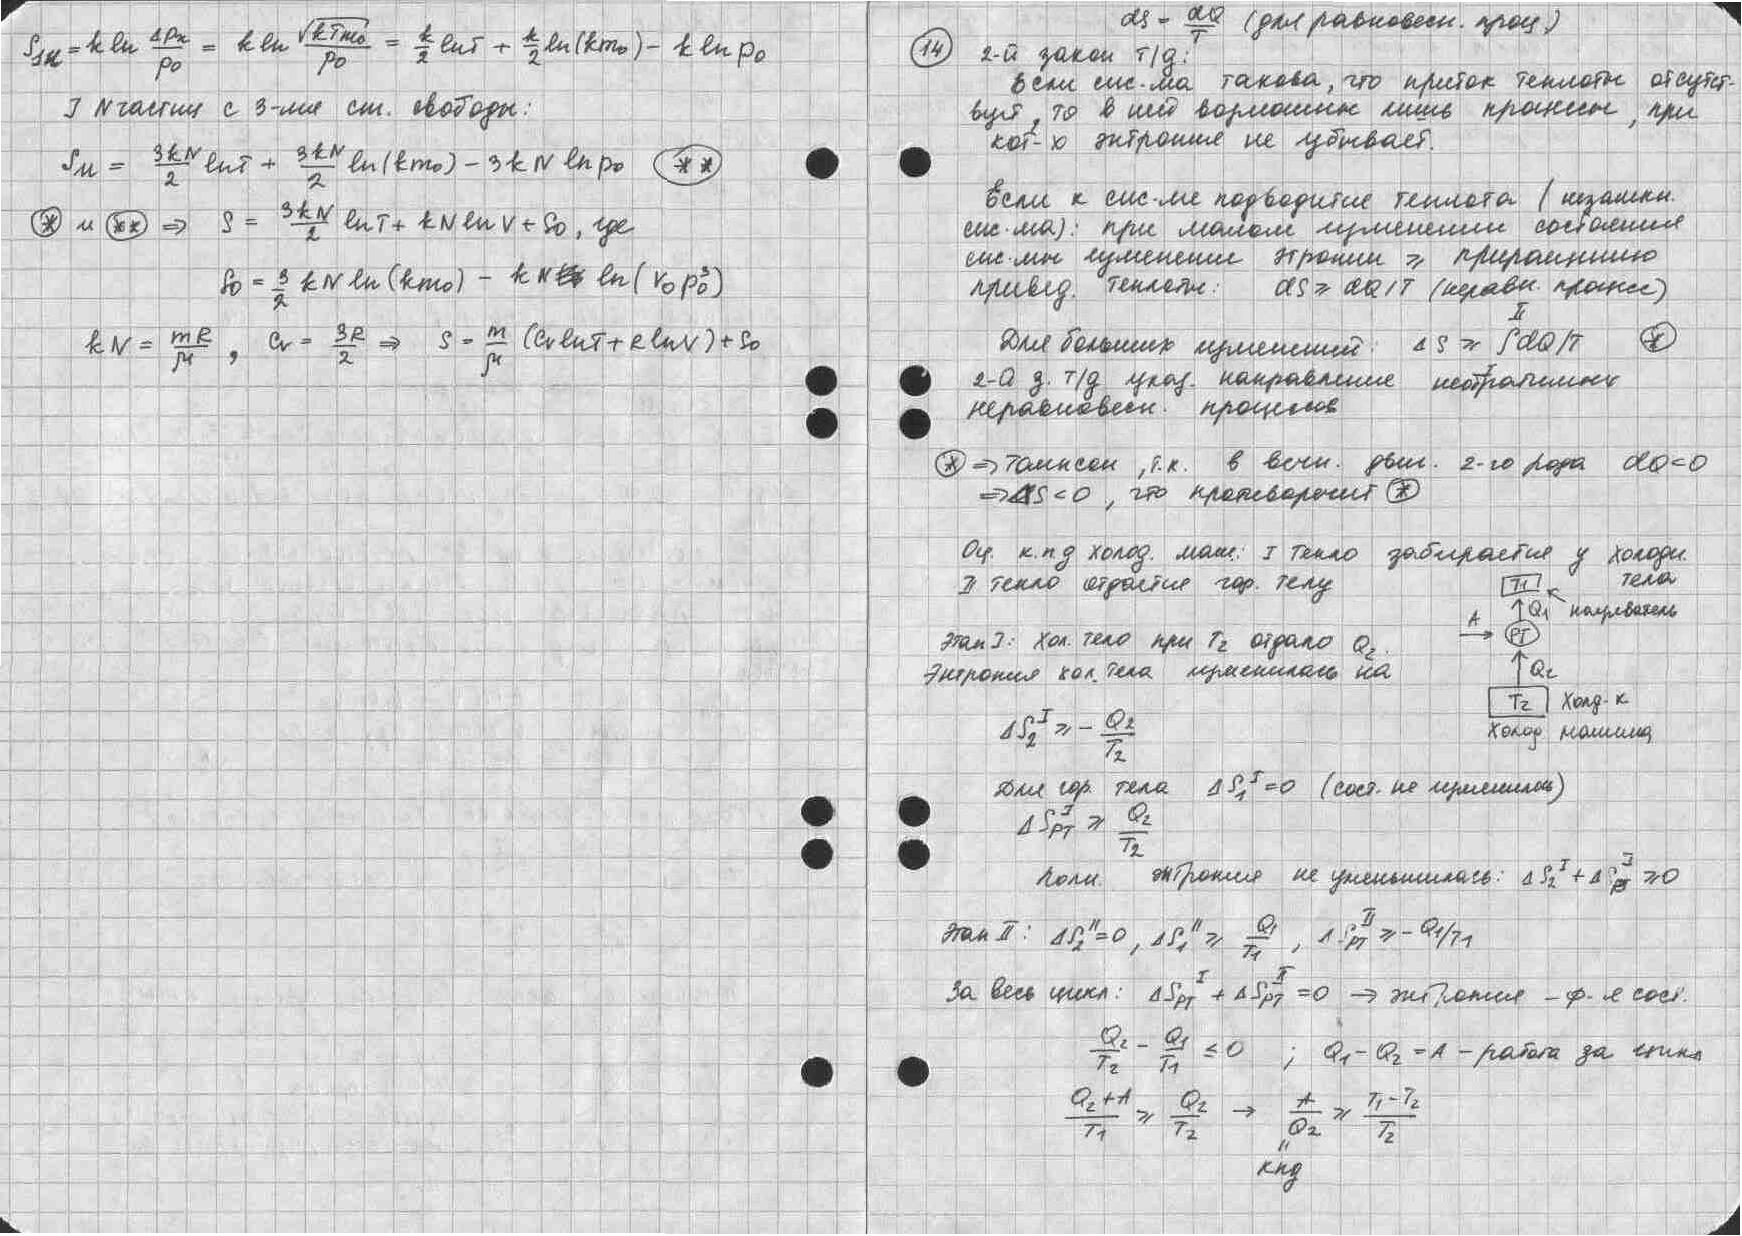 S₁ₓ = k ln Δpₓ/p₀ = k ln √(kTm₀)/p₀ = k/2 lnT + k/2 ln(km₀) − k ln p₀
∃ N частиц с 3-мя ст. свободы:
Sᵤ = 3kN/2 lnT + 3kN/2 ln(km₀) − 3kN ln p₀ (**)
(*) и (**) ⇒ S = 3kN/2 lnT + kN ln V + S₀, где
S₀ = 3/2 kN ln(km₀) − kN ln(V₀p₀³)
kN = mR/μ, Cv = 3R/2 ⇒ S = m/μ (Cv lnT + R lnV) + S₀
dS = dQ/T (для равновесн. проц.)
(14) 2-й закон т/д:
Если сис-ма такова, что приток теплоты отсутст-
вует, то в ней возможны лишь процессы, при
кот-х энтропия не убывает.
Если к сис-ме подводится теплота (незамкн.
сис-ма): при малом изменении состояния
сис-мы изменение этропии ≥ приращению
привед. теплоты: dS ≥ dQ/T (неравн. процесс)
Для больших изменений: ΔS ≥ ∫ᴵᴵᵢ dQ/T (*)
2-й з. т/д указ. направление необратимых
неравновесн. процессов
(*) ⇒ Томпсон, т.к. в вечн. двиг. 2-го рода dQ<0
⇒ ΔS<0, что противоречит (*)
Оц. к.п.д холод. маш.: I тепло забирается у холодн.
тела
II тепло отдаётся гор. телу
T₁
нагреватель
Q₁
A
РТ
Q₂
T₂ Холд-к
Холод машина
Этап I: Хол. тело при T₂ отдало Q₂.
Энтропия хол. тела изменилась на
ΔS₂ᴵ ≥ − Q₂/T₂
Для гор. тела ΔS₁ᴵ = 0 (сост. не изменилось)
ΔS_РТᴵ ≥ Q₂/T₂
Полн. энтропия не уменьшилась: ΔS₂ᴵ + ΔS_РТᴵ ≥ 0
Этап II: ΔS₂ᴵᴵ = 0, ΔS₁ᴵᴵ ≥ Q₁/T₁, ΔS_РТᴵᴵ ≥ − Q₁/T₁
За весь цикл: ΔS_РТᴵ + ΔS_РТᴵᴵ = 0 → энтропия – ф-я сост.
Q₂/T₂ − Q₁/T₁ ≤ 0 ; Q₁ − Q₂ = A – работа за цикл
(Q₂+A)/T₁ ≥ Q₂/T₂ → A/Q₂ ≥ (T₁−T₂)/T₂
"
кпд